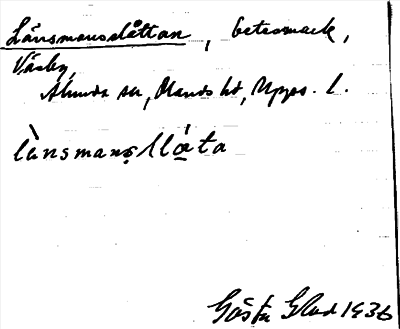 Länsmansslåttan, betesmark,
Väsby,
Alunda sn, Olands hd, Upps. l.
lànsmanṣlla̱ta
Gösta Glad 1936